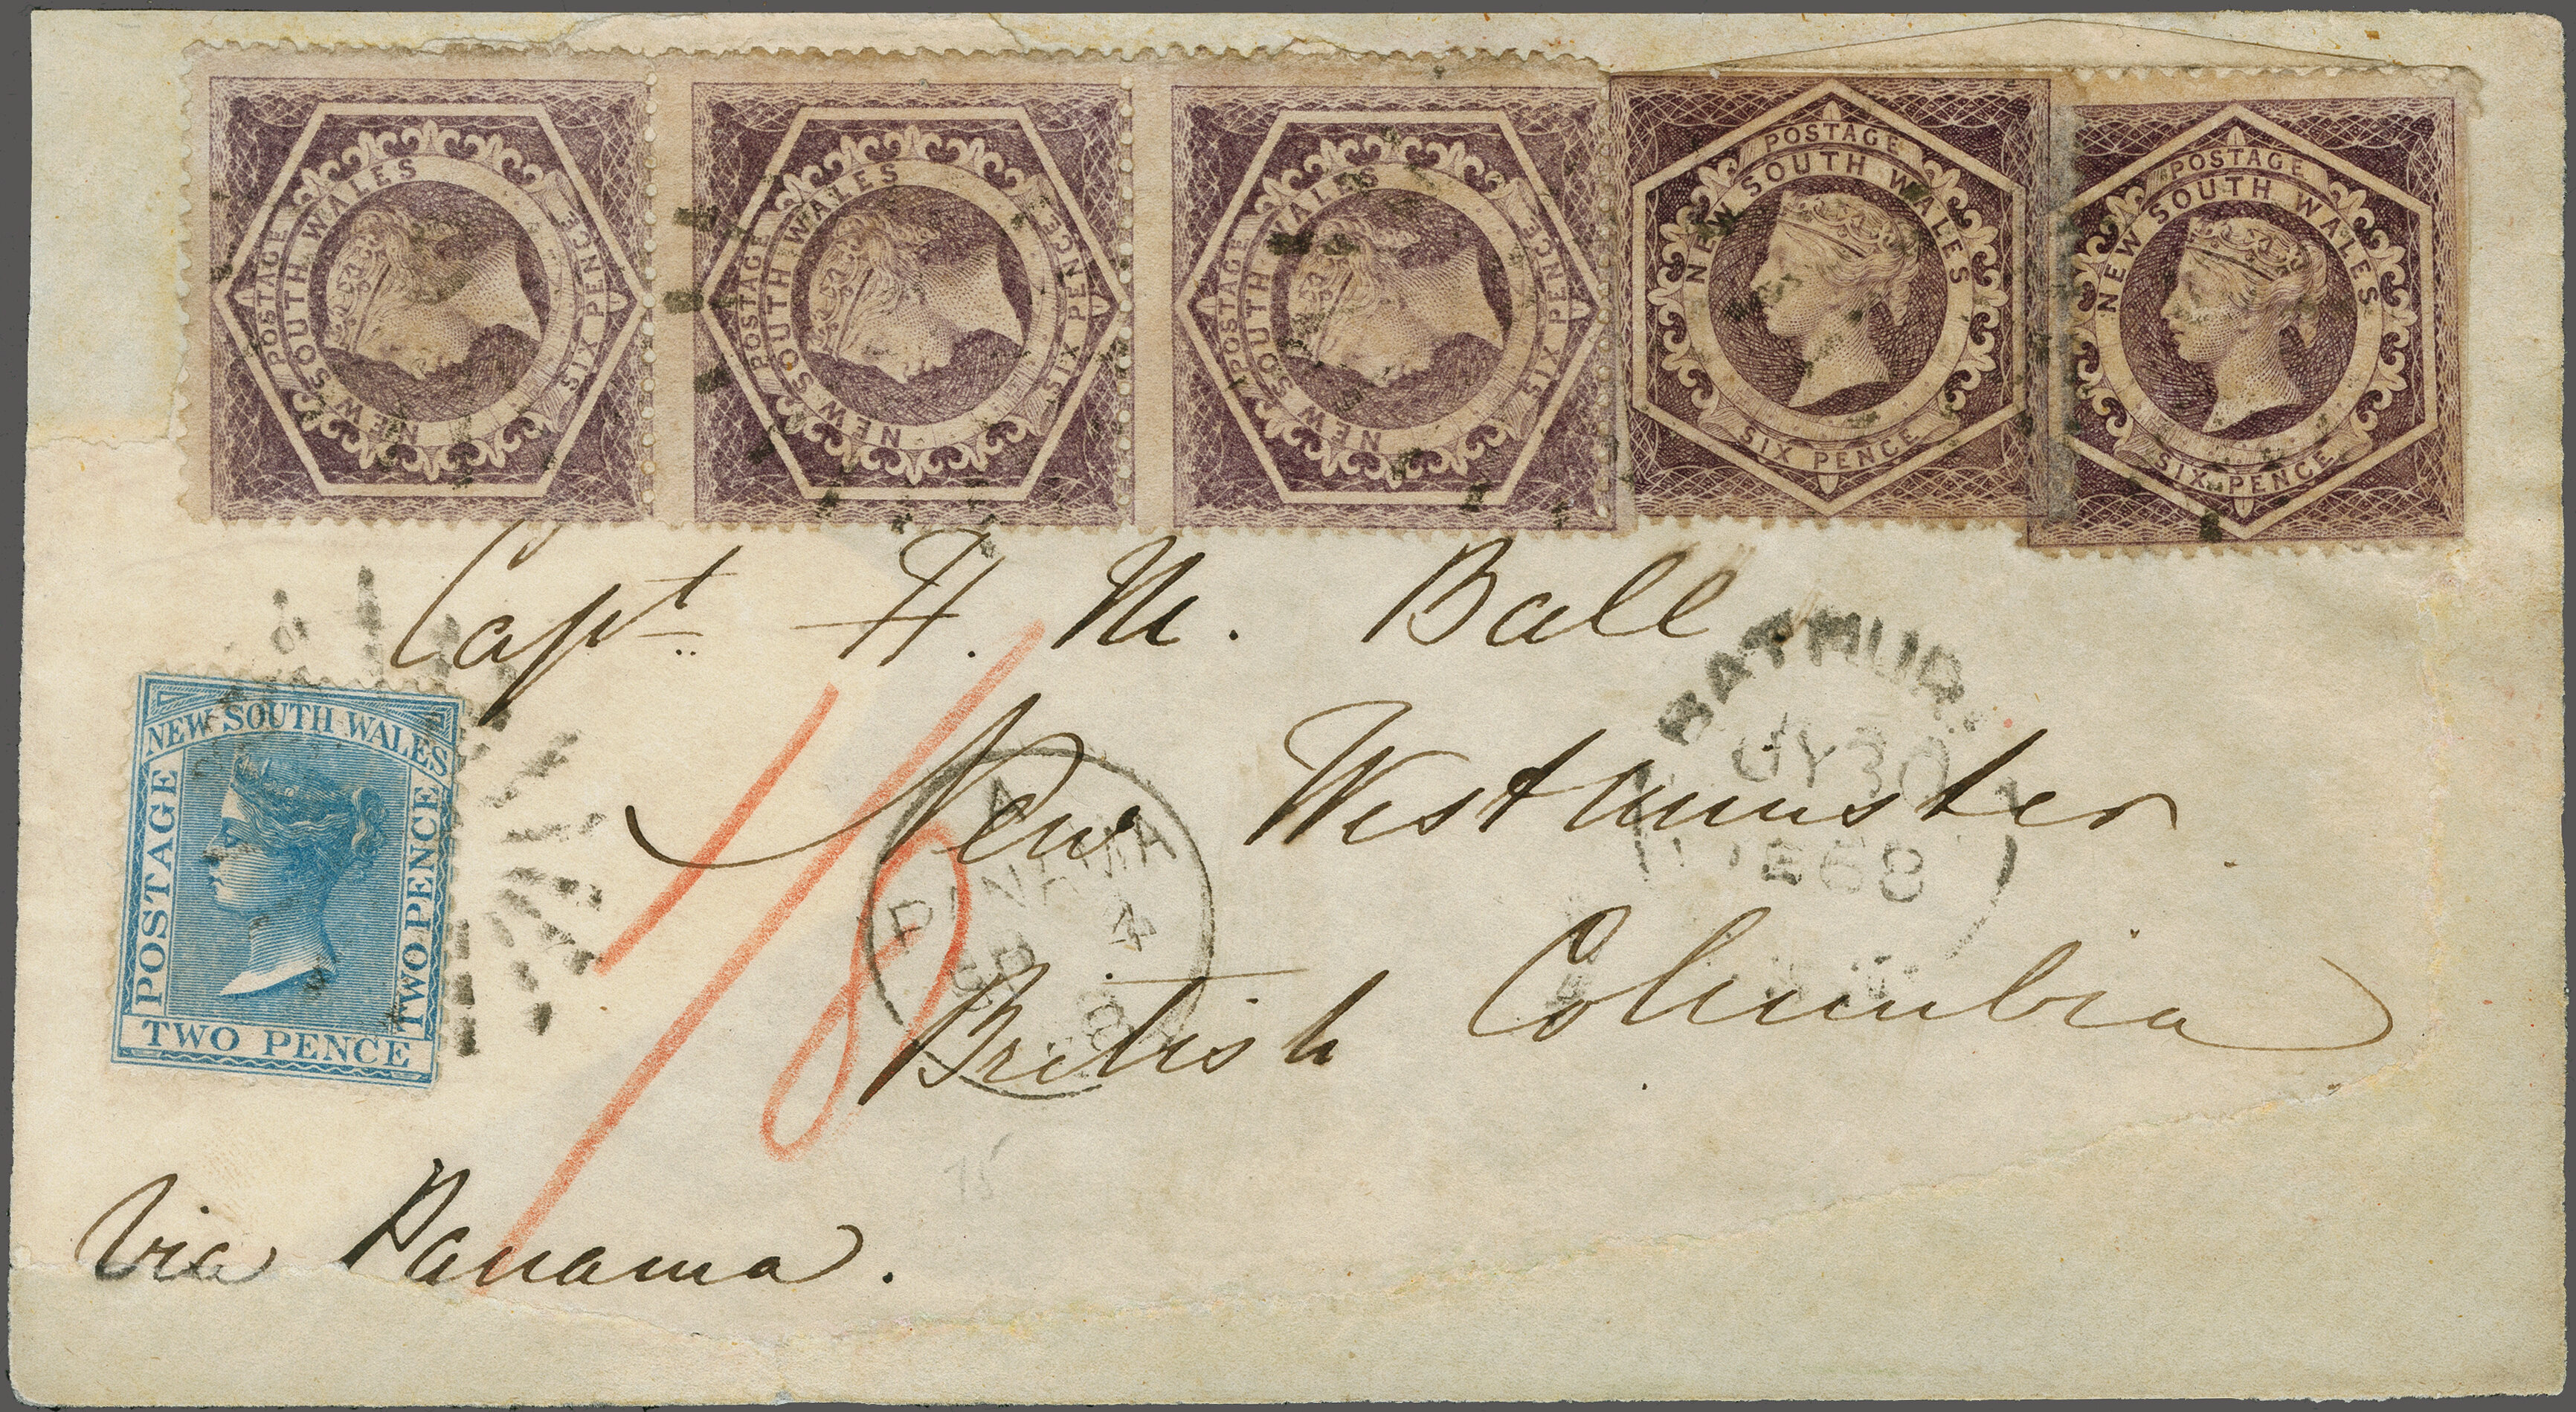 POSTAGE
NEW SOUTH WALES
SIX PENCE
POSTAGE
NEW SOUTH WALES
SIX PENCE
POSTAGE
NEW SOUTH WALES
SIX PENCE
POSTAGE
NEW SOUTH WALES
SIX PENCE
POSTAGE
NEW SOUTH WALES
SIX PENCE
Capt. H. M. Ball
New Westminster
British Columbia
Via Panama.
NEW SOUTH WALES
POSTAGE
TWO PENCE
TWO PENCE
1/8
PANAMA
A
BATHUR
JY 30
1868